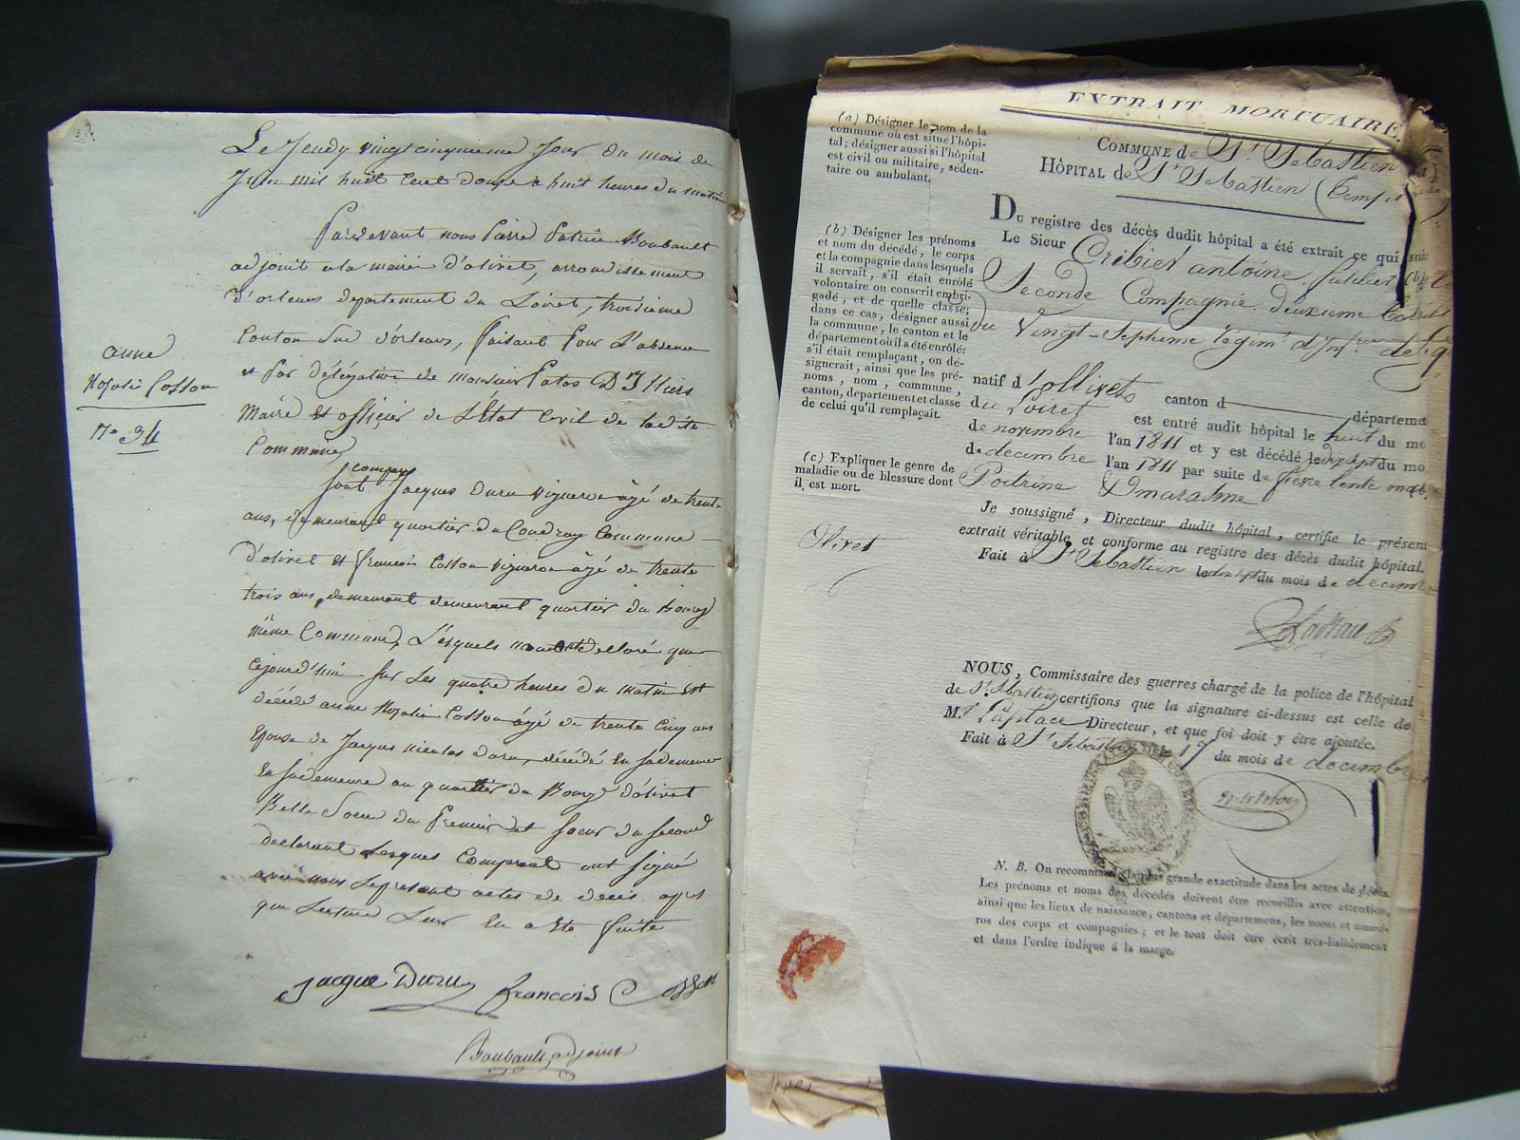 Le Jeudy vingt cinquieme Jour du mois de
Juin mil huit Cent douze a huit heures du matin
Pardevant nous Pierre Patrice Boubault
adjoint a la mairie d'olivet, arrondissement
d'orleans departement du Loiret, troisieme
Canton Sud d'orleans, faisant pour L'absence
et par délégation de monsieur Patas D'Illiers
Maire et officier de L'état Civil de ladite
Commune
anne
Rosalie Cosson
N.o 34
compary
Sont Jacques Duru vigneron âgé de trente
ans, demeurant quartier du Coudray Commune
d'olivet et françois Cosson vigneron âgé de trente
trois ans, demeurant demeurant quartier du Bourg
même Commune, Lesquels nous ont déclaré que
Cejourd'hui sur Les quatre heures du matin est
décédé anne Rosalie Cosson âgé de trente Cinq ans
Epouse de Jacques nicolas Duru, décédé en sa demeure
en sa demeure au quartier du Bourg d'olivet
Belle Soeur du Premier et soeur du second
declarant Lesques Comparant ont signé
avec nous Le présent actes de décès apres
que Lecture Leur en a Eté faite
Jacque Duru françois Cosson
Boubault, adjoint
EXTRAIT MORTUAIRE.
(a) Désigner le nom de la
commune où est situé l'hôpi-
tal; désigner aussi si l'hôpital
est civil ou militaire, séden-
taire ou ambulant.
COMMUNE de St Sebastien
HÔPITAL de St Sebastien
(b) Désigner les prénoms
et nom du décédé, le corps
et la compagnie dans lesquels
il servait, s'il était enrôlé
volontaire ou conscrit embri-
gadé, et de quelle classe;
dans ce cas, désigner aussi
la commune, le canton et le
département où il a été enrôlé:
s'il était remplaçant, on dé-
signerait, ainsi que les pré-
noms, nom, commune,
canton, département et classe
de celui qu'il remplaçait.
Du registre des décès dudit hôpital a été extrait ce qui suit
Le Sieur Cribier antoine fusilier (b)
Seconde Compagnie deuxieme
du Vingt-Septieme régimt d'Infrie de
natif d'ollivets canton d départeme
du Loiret est entré audit hôpital le huit du mo
de novembre l'an 1811 et y est décédé le dix sept du mo
de decembre l'an 1811 par suite de fievre lente
Poitrine & marasme
(c) Expliquer le genre de
maladie ou de blessure dont
il est mort.
Olivet
Je soussigné, Directeur dudit hôpital, certifie le présent
extrait véritable et conforme au registre des décès dudit hôpital.
Fait à St Sebastien le dix sept du mois de decembre
NOUS, Commissaire des guerres chargé de la police de l'hôpital
de St Sebastien certifions que la signature ci-dessus est celle de
M.r Laplace Directeur, et que foi doit y être ajoutée.
Fait à St Sebastien le 17 du mois de decembre
N. B. On recommande la plus grande exactitude dans les actes de décès.
Les prénoms et noms des décédés doivent être recueillis avec attention,
ainsi que les lieux de naissance, cantons et départemens, les noms et numé-
ros des corps et compagnies; et le tout doit être écrit très-lisiblement
et dans l'ordre indiqué à la marge.